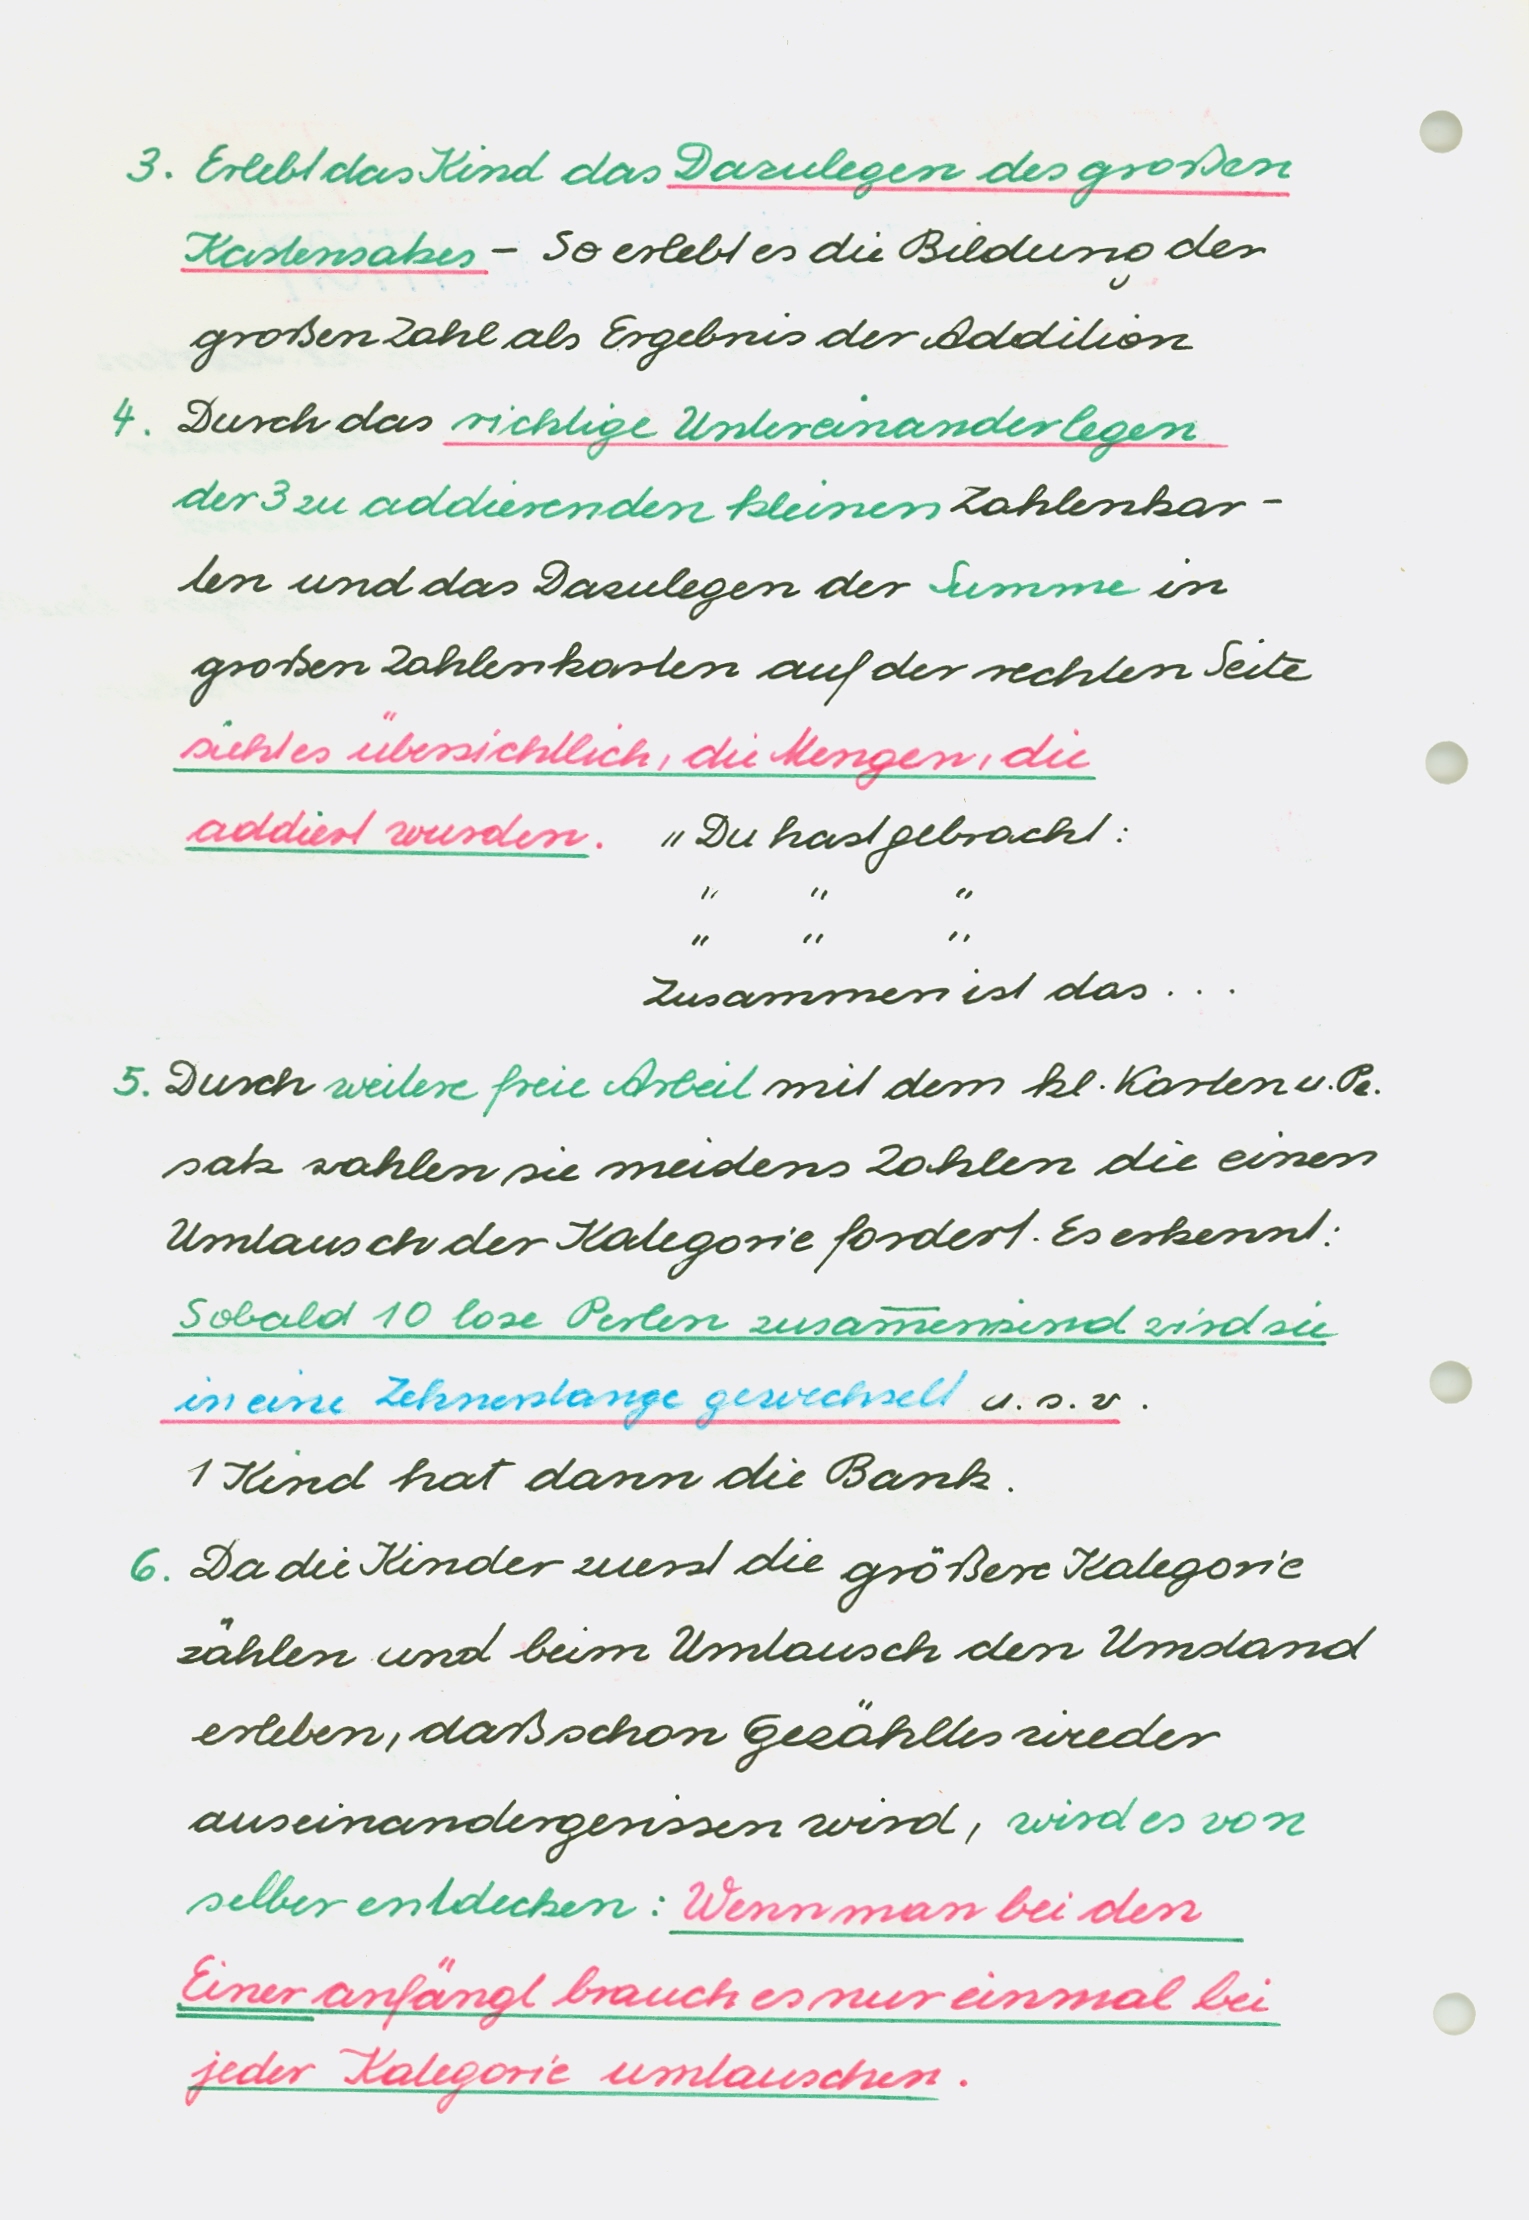 3. Erlebt das Kind das Dazulegen des großen
Kartensatzes – So erlebt es die Bildung der
großen Zahl als Ergebnis der Addition
4. Durch das richtige Untereinanderlegen
der 3 zu addierenden kleinen Zahlenkar-
ten und das Dazulegen der Summe in
großen Zahlenkarten auf der rechten Seite
sieht es übersichtlich, die Mengen, die
addiert wurden. "Du hast gebracht:
" " "
" " "
Zusammen ist das...
5. Durch weitere freie Arbeit mit dem kl. Karten u. Pe.
satz wahlen sie meidens Zahlen die einen
Umtausch der Kategorie fordert. Es erkennt:
Sobald 10 lose Perlen zusam̅ensind wird sie
in eine Zehnerstange gewechselt u. s. w.
1 Kind hat dann die Bank.
6. Da die Kinder zuerst die größere Kategorie
zählen und beim Umtausch den Umstand
erleben, daß schon Gezähltes wieder
auseinandergerissen wird, wird es von
selber entdecken: Wenn man bei den
Einer anfängt brauch es nur einmal bei
jeder Kategorie umtauschen.